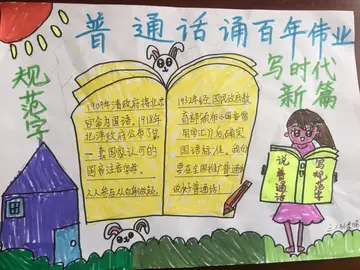 普通话诵百年伟业
规范字
写时代
新篇
1909年清政府将北京
为国语。1918年
北洋政府公布了第
一套国家认可的
国音注音字母。
人人参与从自身做起。
1932年经国民政府教
育部颁布《国音常
用字汇》后确
国语标准。我们
要在全国推广普通话
说好普通话!
说普通话
写规范字